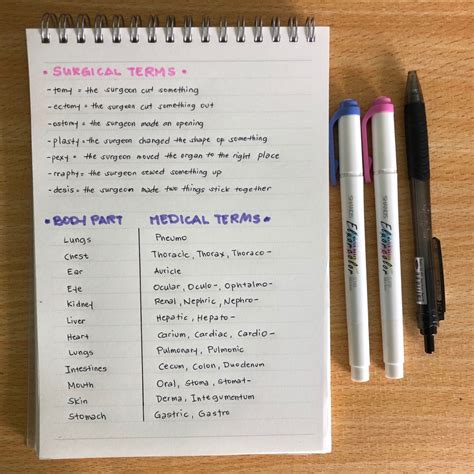 • SURGICAL TERMS •
-tomy = the surgeon cut something
-ectomy = the surgeon cut something out
-ostomy = the surgeon made an opening
-plasty = the surgeon changed the shape of something
-pexy = the surgeon moved the organ to the right place
-rraphy = the surgeon sewed something up
-desis = the surgeon made two things stick together
• BODY PART MEDICAL TERMS •
Lungs Pneumo
Chest Thoracic, Thorax, Thoraco-
Ear Auricle
Eye Ocular, Oculo-, Ophtalmo-
Kidney Renal, Nephric, Nephro-
Liver Hepatic, Hepato-
Heart Carium, Cardiac, Cardio-
Lungs Pulmonary, Pulmonic
Intestines Cecum, Colon, Duodenum
Mouth Oral, Stoma, Stomat-
Skin Derma, Integumentum
Stomach Gastric, Gastro